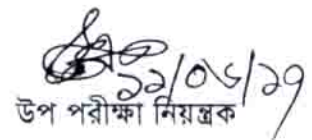 ১২/০৬/১৭
উপ পরীক্ষা নিয়ন্ত্রক